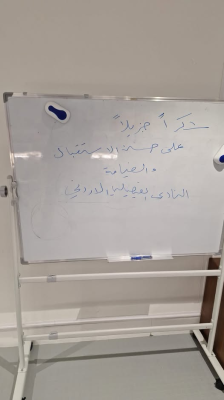 شكراً جزيلاً
على حسن الاستقبال
والضيافة
النادي